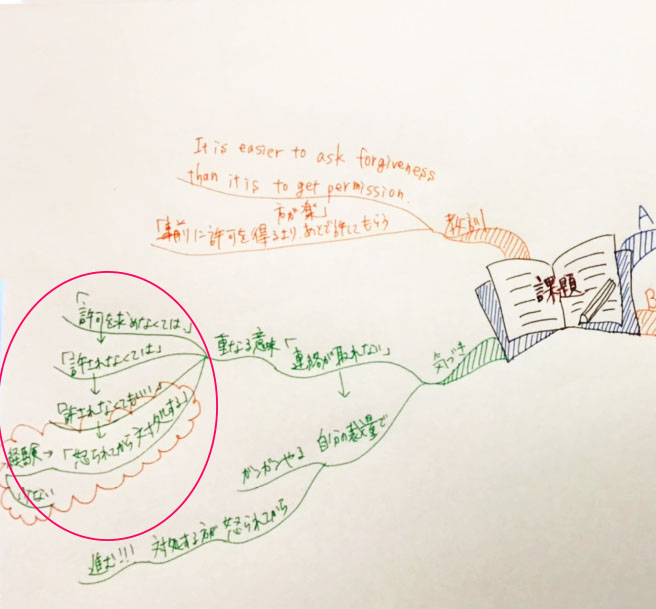 It is easier to ask forgiveness
than it is to get permission.
方が楽」
「事前に許可を得るより あとで許してもらう
教訓
課題
A
B
気づき
「連絡が取れない」
重なる意味
「許可を求めなくては」
「許されなくては」
「許されなくてもいい」
経験→「怒られてから対処する」
少ない
自分の裁量で
ガンガンやる
怒られてから
対処する方が
進む!!!